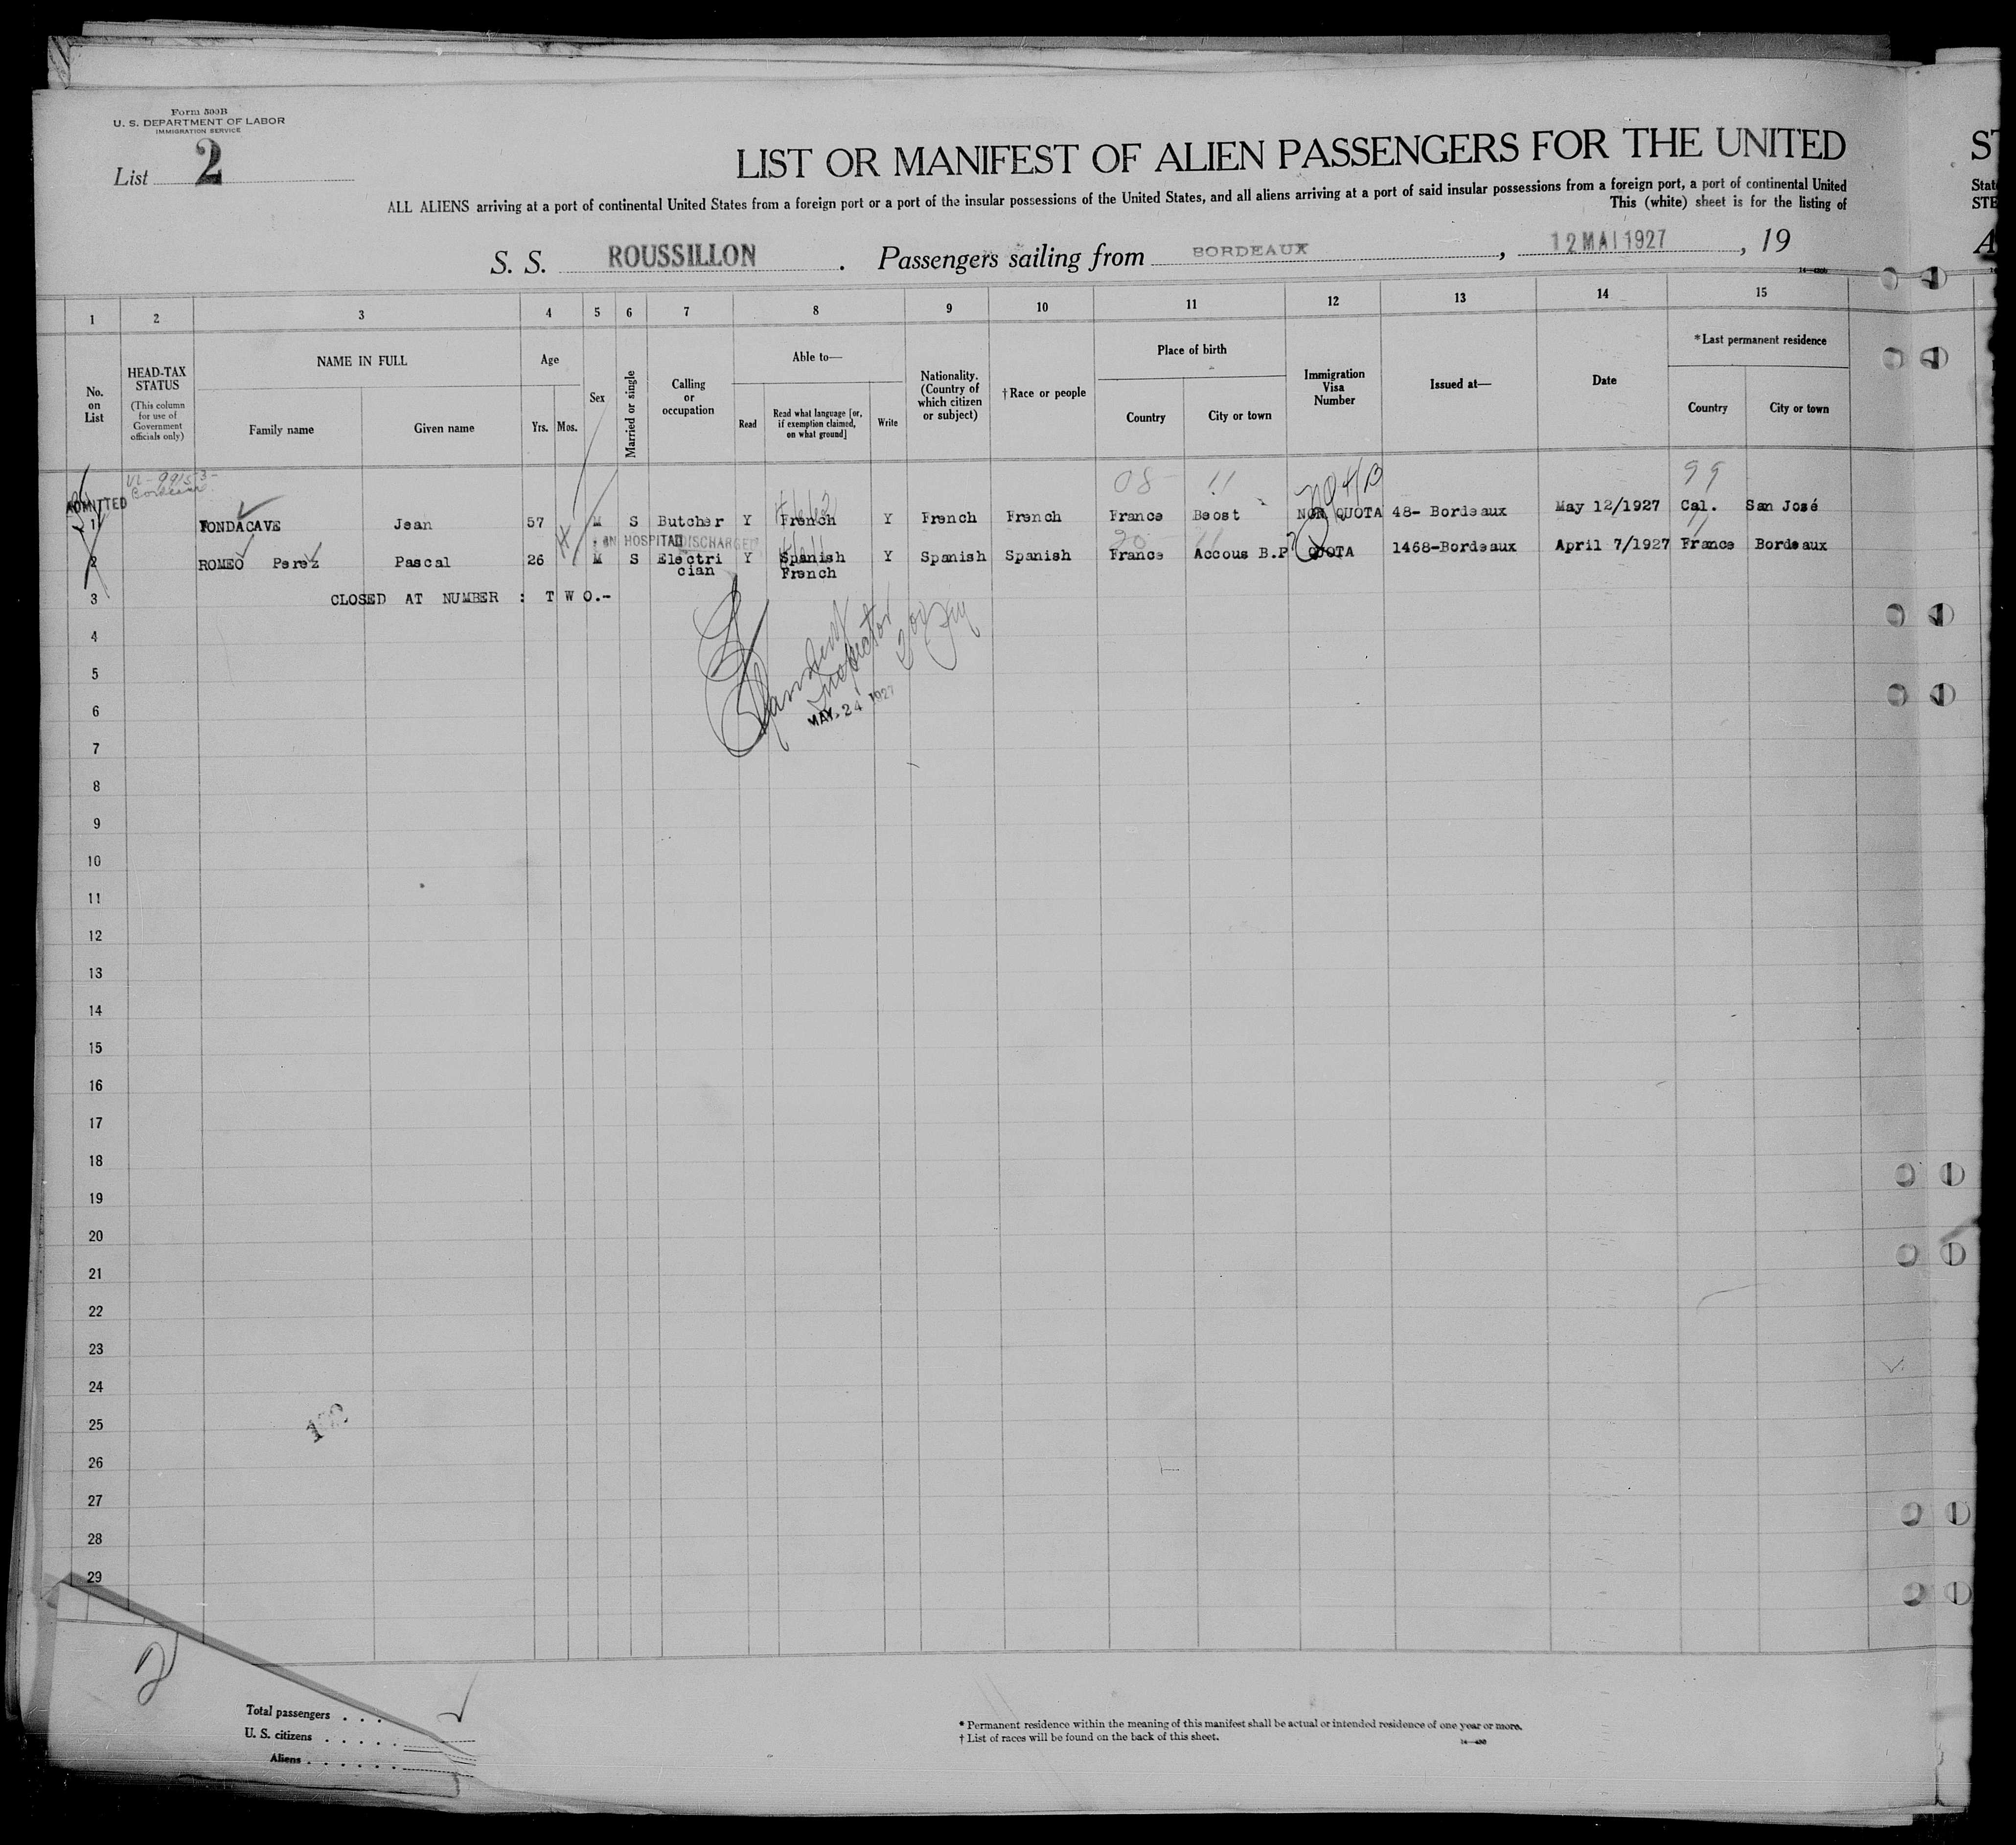 Form 500B
U. S. DEPARTMENT OF LABOR
IMMIGRATION SERVICE
List 2
LIST OR MANIFEST OF ALIEN PASSENGERS FOR THE UNITED
ALL ALIENS arriving at a port of continental United States from a foreign port or a port of the insular possessions of the United States, and all aliens arriving at a port of said insular possessions from a foreign port, a port of continental United
This (white) sheet is for the listing of
S. S. ROUSSILLON . Passengers sailing from BORDEAUX , 12 MAI 1927 , 19
ST
STE
A
1 2 3 4 5 6 7 8 9 10 11 12 13 14 15
No. on List
HEAD-TAX STATUS
(This column for use of Government officials only)
NAME IN FULL
Family name
Given name
Age
Yrs. Mos.
Sex
Married or single
Calling or occupation
Able to—
Read
Read what language [or, if exemption claimed, on what ground]
Write
Nationality. (Country of which citizen or subject)
† Race or people
Place of birth
Country
City or town
Immigration Visa Number
Issued at—
Date
* Last permanent residence
Country
City or town
Bordeaux
08 11 99
ADMITTED
1 FONDACAVE Jean 57 M S Butcher Y French Y French French France Beost NON QUOTA 48- Bordeaux May 12/1927 Cal. San José
IN HOSPITAL DISCHARGED
2 ROMEO Perez Pascal 26 M S Electri Y Spanish Y Spanish Spanish France Accous B.P QUOTA 1468-Bordeaux April 7/1927 France Bordeaux
cian French
3 CLOSED AT NUMBER : T W O.-
Inspector
MAY 24 1927
4
5
6
7
8
9
10
11
12
13
14
15
16
17
18
19
20
21
22
23
24
25
26
27
28
29
2
Total passengers . . .
U. S. citizens . . . . .
Aliens . . . . . .
* Permanent residence within the meaning of this manifest shall be actual or intended residence of one year or more.
† List of races will be found on the back of this sheet.